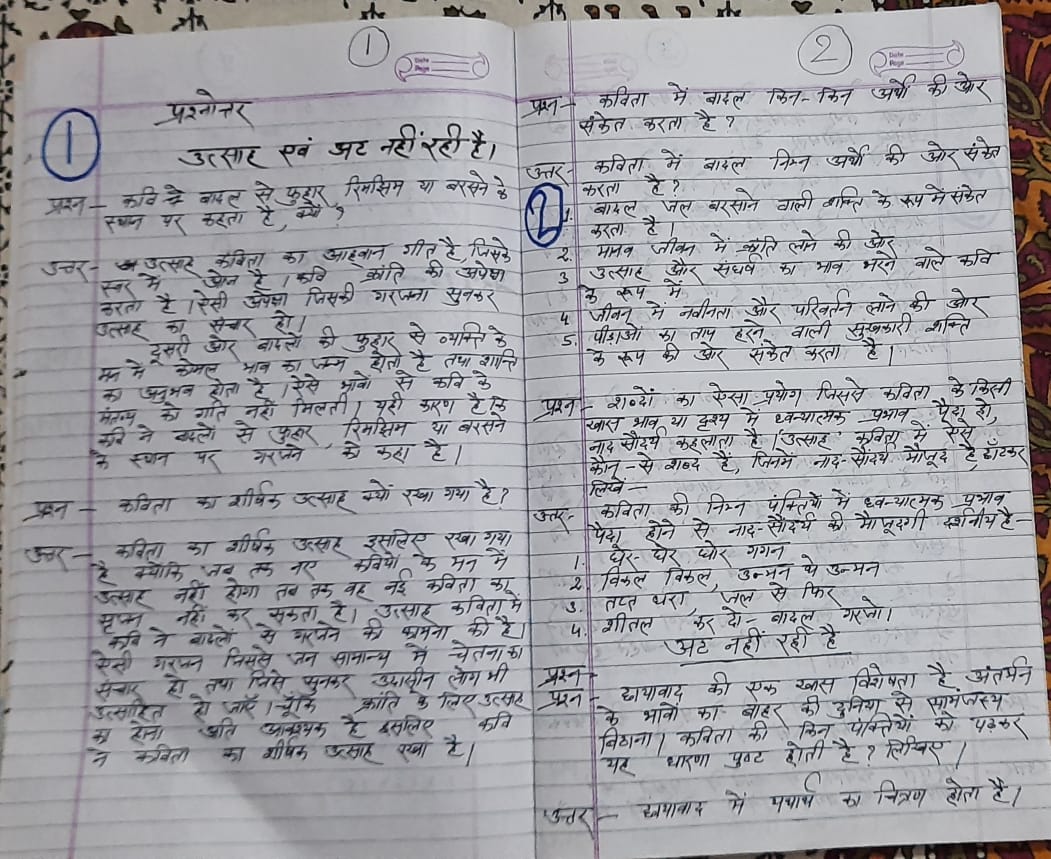 1
Date
Page
प्रश्नोत्तर
1
उत्साह एवं अट नहीं रही है।
प्रश्न – कवि ने बादल से फुहार, रिमझिम या बरसने के
स्थान पर कहता है, क्यों?
उत्तर – उत्साह कविता का आहवान गीत है जिसके
स्वर में ओज है। कवि क्रांति की अपेक्षा
करता है। ऐसी अपेक्षा जिसकी गरजना सुनकर
उत्साह का संचार हो।
दूसरी ओर बादलों की फुहार से व्यक्ति के
मन में कोमल भाव का जन्म होता है तथा शान्ति
का अनुभव होता है। ऐसे भावों से कवि के
मंतव्य को गति नहीं मिलती। यही कारण है कि
कवि ने बादलों से फुहार, रिमझिम या बरसने
के स्थान पर गरजने को कहा है।
प्रश्न – कविता का शीर्षक उत्साह क्यों रखा गया है?
उत्तर – कविता का शीर्षक उत्साह इसलिए रखा गया
है क्योंकि जब तक नए कवियों के मन में
उत्साह नहीं होगा तब तक वह नई कविता का
सृजन नहीं कर सकता है। उत्साह कविता में
कवि ने बादलों से गरजने की कामना की है।
ऐसी गरजन जिससे जन सामान्य में चेतना का
संचार हो तथा जिसे सुनकर उदासीन लोग भी
उत्साहित हो जाएँ। चूँकि क्रांति के लिए उत्साह
का होना अति आवश्यक है इसलिए कवि
ने कविता का शीर्षक उत्साह रखा है।
2
Date
Page
प्रश्न – कविता में बादल किन-किन अर्थों की ओर
संकेत करता है?
उत्तर – कविता में बादल निम्न अर्थों की ओर संकेत
करता है?
2
1. बादल जल बरसाने वाली शक्ति के रूप में संकेत
करता है।
2. मानव जीवन में क्रांति लाने की ओर
3 उत्साह और संघर्ष का भाव भरने वाले कवि
के रूप में
4 जीवन में नवीनता और परिवर्तन लाने की ओर
5. पीड़ाओं का ताप हरने वाली सुखकारी शक्ति
के रूप की ओर संकेत करता है।
प्रश्न – शब्दों का ऐसा प्रयोग जिससे कविता के किसी
खास भाव या दृश्य में ध्वन्यात्मक प्रभाव पैदा हो,
नाद सौंदर्य कहलाता है। उत्साह कविता में ऐसे
कौन-से शब्द हैं, जिनमें नाद-सौंदर्य मौजूद है, छाँटकर
लिखें –
उत्तर – कविता की निम्न पंक्तियों में ध्वन्यात्मक प्रभाव
पैदा होने से नाद-सौंदर्य की मौजूदगी दर्शनीय है –
1. घेर-घेर घोर गगन
2. विकल विकल, उन्मन थे उन्मन
3. तप्त धरा, जल से फिर
4. शीतल कर दो – बादल गरजो।
अट नहीं रही है
प्रश्न –
प्रश्न – छायावाद की एक खास विशेषता है अंतर्मन
के भावों का बाहर की दुनिया से सामंजस्य
बिठाना। कविता की किन पंक्तियों को पढ़कर
यह धारणा पुष्ट होती है? लिखिए।
उत्तर – छायावाद में यथार्थ का चित्रण होता है।